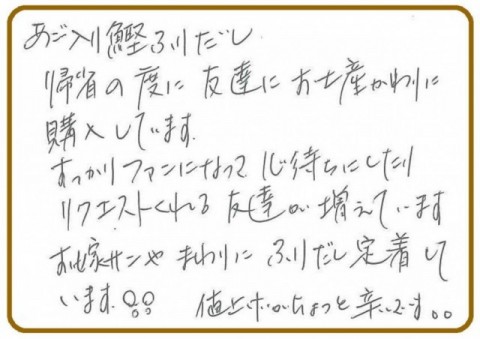 あご入り鰹ふりだし
帰省の度に友達にお土産がわりに
購入しています。
すっかりファンになって心待ちにしたり
リクエストくれる友達が増えています
お嫁サンやまわりにふりだし定着して
います。 値上ゲがちょっと辛いです。。